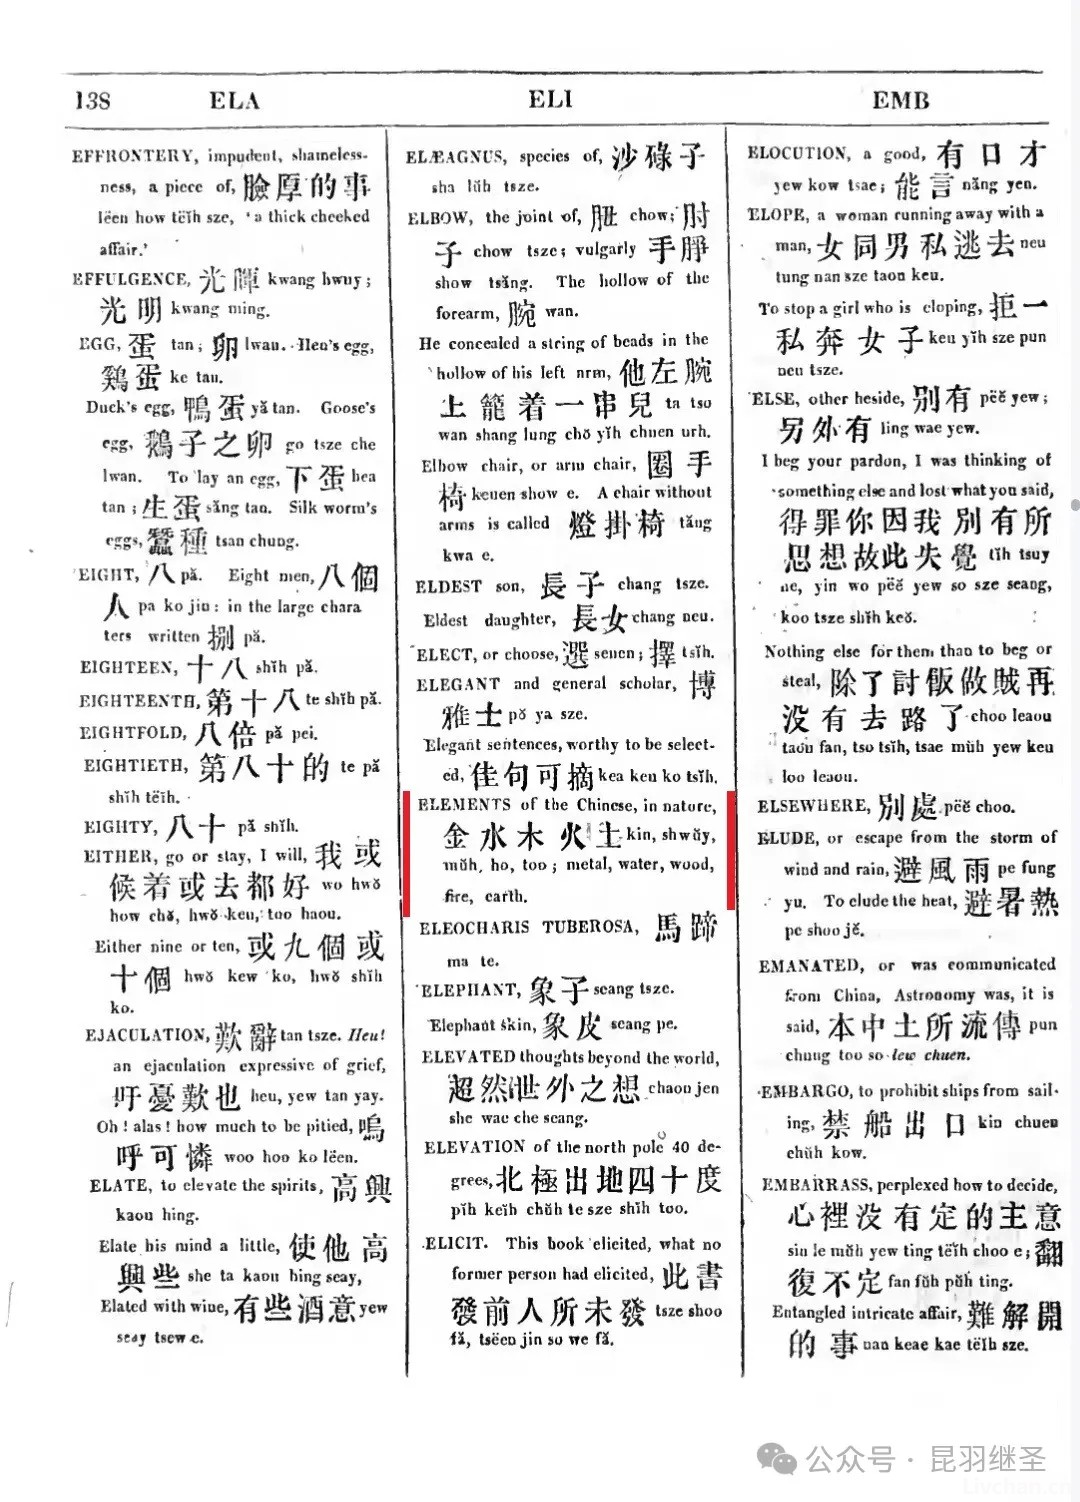 138 ELA ELI EMB
EFFRONTERY, impudent, shameless-
ness, a piece of, 臉厚的事
lëen how tëĭh sze, ‘a thick cheeked
affair.’
EFFULGENCE, 光暉 kwang hwuy;
光明 kwang ming.
EGG, 蛋 tan; 卵 lwan. Hen's egg,
鷄蛋 ke tan.
Duck's egg, 鴨蛋 yă tan. Goose's
egg, 鵝子之卵 go tsze che
lwan. To lay an egg, 下蛋 hea
tan; 生蛋 săng tan. Silk worm's
eggs, 蠶種 tsan chung.
EIGHT, 八 pă. Eight men, 八個
人 pa ko jin: in the large chara
ters written 捌 pă.
EIGHTEEN, 十八 shĭh pă.
EIGHTEENTH, 第十八 te shĭh pă.
EIGHTFOLD, 八倍 pă pei.
EIGHTIETH, 第八十的 te pă
shĭh tëĭh.
EIGHTY, 八十 pă shĭh.
EITHER, go or stay, I will, 我或
候着或去都好 wo hwŏ
how chŏ, hwŏ keu, too haou.
Either nine or ten, 或九個或
十個 hwŏ kew ko, hwŏ shĭh
ko.
EJACULATION, 歎辭 tan tsze. Heu!
an ejaculation expressive of grief,
吁憂歎也 heu, yew tan yay.
Oh! alas! how much to be pitied, 嗚
呼可憐 woo hoo ko lëen.
ELATE, to elevate the spirits, 高興
kaou hing.
Elate his mind a little, 使他高
興些 she ta kaou hing seay,
Elated with wine, 有些酒意 yew
seay tsew e.
ELÆAGNUS, species of, 沙碌子
sha lŭh tsze.
ELBOW, the joint of, 肘 chow; 肘
子 chow tsze; vulgarly 手睜
show tsăng. The hollow of the
forearm, 腕 wan.
He concealed a string of beads in the
hollow of his left arm, 他左腕
上籠着一串兒 ta tso
wan shang lung chŏ yĭh chuen urh.
Elbow chair, or arm chair, 圈手
椅 keuen show e. A chair without
arms is called 燈掛椅 tăng
kwa e.
ELDEST son, 長子 chang tsze.
Eldest daughter, 長女 chang neu.
ELECT, or choose, 選 seuen; 擇 tsĭh.
ELEGANT and general scholar, 博
雅士 pŏ ya sze.
Elegant sentences, worthy to be select-
ed, 佳句可摘 kea keu ko tsĭh.
ELEMENTS of the Chinese, in nature,
金水木火土 kin, shwŭy,
mŭh, ho, too; metal, water, wood,
fire, earth.
ELEOCHARIS TUBEROSA, 馬蹄
ma te.
ELEPHANT, 象子 seang tsze.
Elephant skin, 象皮 seang pe.
ELEVATED thoughts beyond the world,
超然世外之想 chaou jen
she wae che seang.
ELEVATION of the north pole 40 de-
grees, 北極出地四十度
pĭh keĭh chŭh te sze shĭh too.
ELICIT. This book elicited, what no
former person had elicited, 此書
發前人所未發 tsze shoo
fă, tsëen jin so we fă.
ELOCUTION, a good, 有口才
yew kow tsae; 能言 năng yen.
ELOPE, a woman running away with a
man, 女同男私逃去 neu
tung nan sze taou keu.
To stop a girl who is eloping, 拒一
私奔女子 keu yĭh sze pun
neu tsze.
ELSE, other beside, 別有 pëĕ yew;
另外有 ling wae yew.
I beg your pardon, I was thinking of
something else and lost what you said,
得罪你因我別有所
思想故此失覺 tĭh tsuy
ne, yin wo pëĕ yew so sze seang,
koo tsze shĭh keŏ.
Nothing else for them than to beg or
steal, 除了討飯做賊再
没有去路了 choo leaou
taou fan, tso tsĭh, tsae mŭh yew keu
loo leaou.
ELSEWHERE, 別處 pëĕ choo.
ELUDE, or escape from the storm of
wind and rain, 避風雨 pe fung
yu. To elude the heat, 避暑熱
pe shoo jĕ.
EMANATED, or was communicated
from China, Astronomy was, it is
said, 本中土所流傳 pun
chung too so lew chuen.
EMBARGO, to prohibit ships from sail-
ing, 禁船出口 kin chuen
chŭh kow.
EMBARRASS, perplexed how to decide,
心裡没有定的主意
sin le mŭh yew ting tëĭh choo e; 翻
復不定 fan fŭh pŭh ting.
Entangled intricate affair, 難解開
的事 nan keae kae tëĭh sze.
公众号 · 昆羽继圣
Livchan.cn